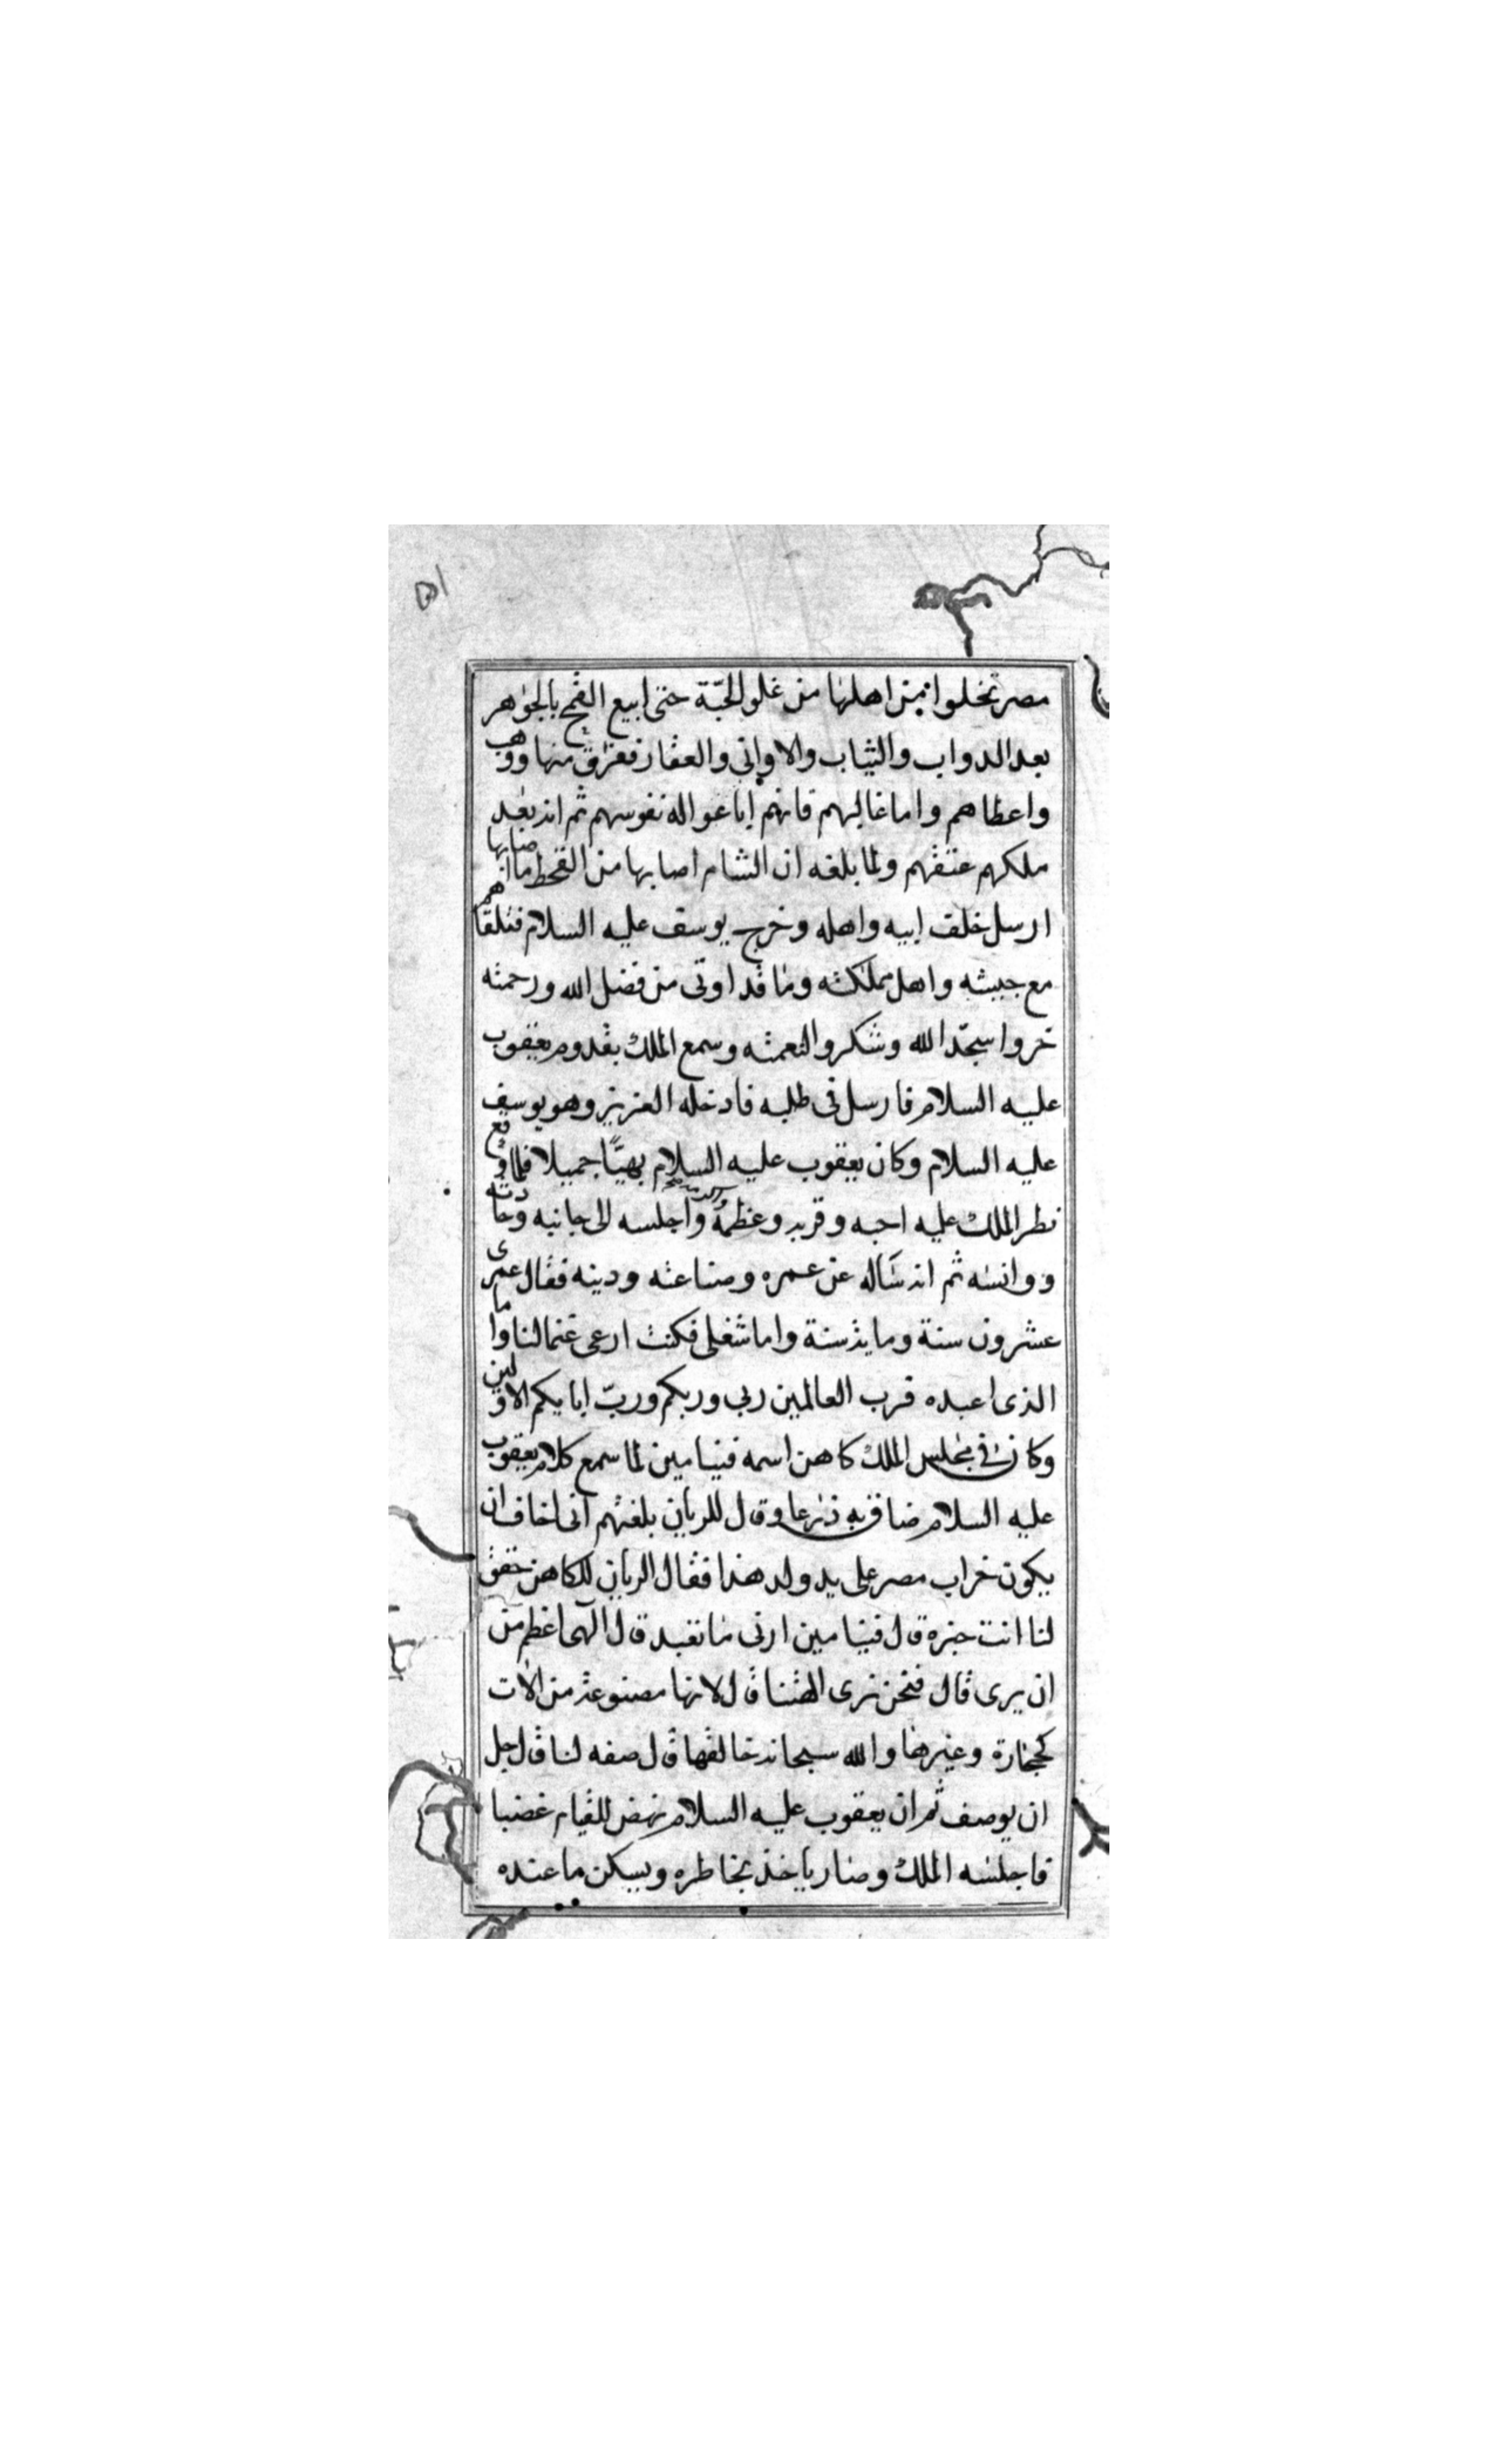 ٥١
مصر تخلوا من اهلها من غلو الحبّة حتى ابيع القمح بالجواهر
بعد الدواب والثياب والاوانى والعقار ففرق منها ووهب
واعطاهم واما غالبهم فانهم اباعوا له نفوسهم ثم انه بعد
ملكهم عتقهم ولما بلغه ان الشام اصابها من القحط ما اصابها
ارسل خلف ابيه واهله وخرج يوسف عليه السلام فتلقاهم
مع جيشه واهل مملكته وما قد اوتى من فضل الله ورحمته
خروا سجّدا لله وشكروا لنعمته وسمع الملك بقدوم يعقوب
عليه السلام فارسل فى طلبه فادخله العزيز وهو يوسف
عليه السلام وكان يعقوب عليه السلام بهيّا جميلا فلما وقع
نظر الملك عليه احبه وقربه وعظمه واجلسه الى جانبه وحادثه
ووانسه ثم انه سَاله عن عمره وصناعته ودينه فقال عمرى
عشرون سنة وماية سنة واما شغلى فكنت ارعى غنما لنا واما
الذى اعبده فرب العالمين ربى وربكم وربّ ابايكم الاولين
وكان فى مجلس الملك كاهن اسمه فنيامين لما سمع كلام يعقوب
عليه السلام ضاق به ذرعا وقال للريان بلغتهم انى اخاف ان
يكون خراب مصر على يد ولد هذا فقال الريان للكاهن حقق
لنا انت خبره قال فنيامين ارنى ما تعبد قال الٓهى اعظم من
ان يرى قال فنحن نرى الهتنا قال لانها مصنوعة من الات
كحجارة وغيرها والله سبحانه خالقها قال صفه لنا قال جل
ان يوصف ثم ان يعقوب عليه السلام نهض للقيام غضبا
فاجلسه الملك وصار ياخذ بخاطره ويسكن ما عنده